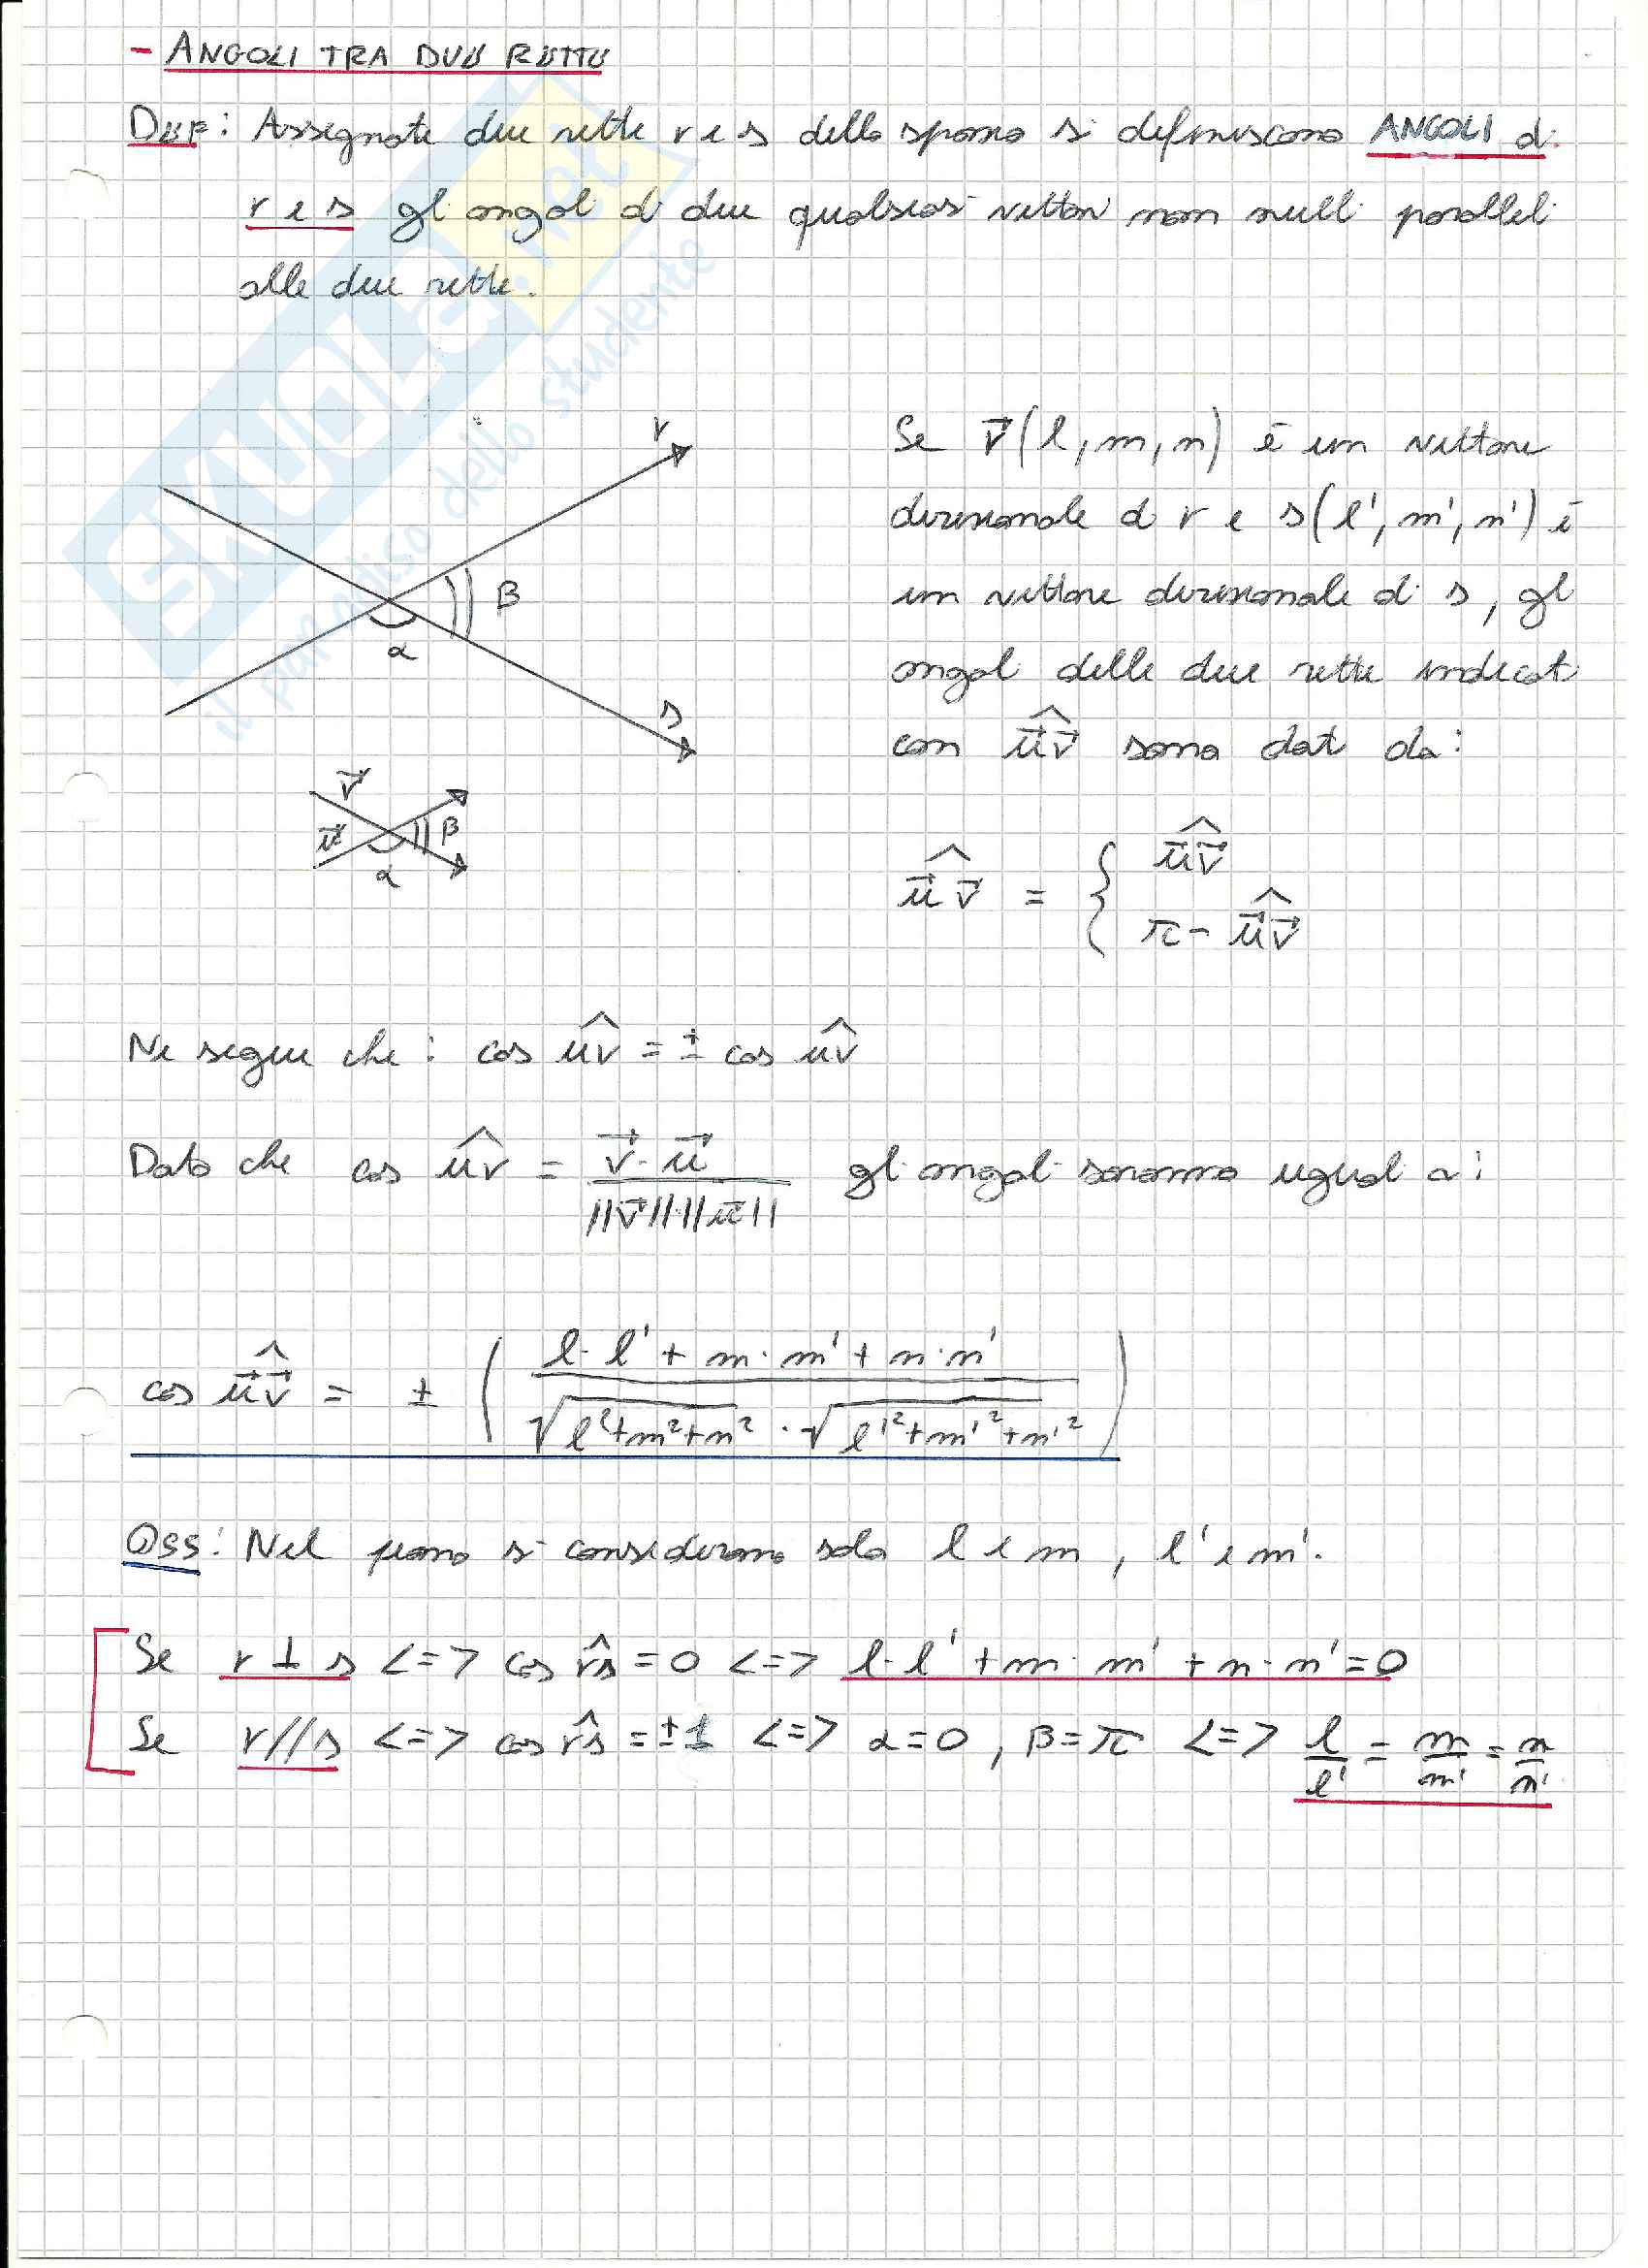 - ANGOLI TRA DUE RETTE
DEF: Assegnate due rette r e s dello spazio si definiscono ANGOLI di
r e s gli angoli di due qualsiasi vettori non nulli paralleli
alle due rette.
r
β
α
s
v⃗
u⃗
β
α
Se v⃗(l, m, n) è un vettore
direzionale di r e s(l', m', n') è
un vettore direzionale di s, gli
angoli delle due rette indicati
con u⃗v⃗^ sono dati da:
u⃗v⃗^ = { u⃗v⃗^
π - u⃗v⃗^
Ne segue che: cos uv^ = ± cos uv^
Dato che cos uv^ = v⃗·u⃗ / ||v⃗||·||u⃗|| gli angoli saranno uguali a:
cos u⃗v⃗^ = ± ( l·l' + m·m' + n·n' / √l²+m²+n² · √l'²+m'²+n'² )
OSS: Nel piano si considerano solo l e m, l' e m'.
Se r ⊥ s <=> cos rs^ = 0 <=> l·l' + m·m' + n·n' = 0
Se r // s <=> cos rs^ = ±1 <=> α = 0, β = π <=> l/l' = m/m' = n/n'
SKUOLA.net
il paradiso dello studente